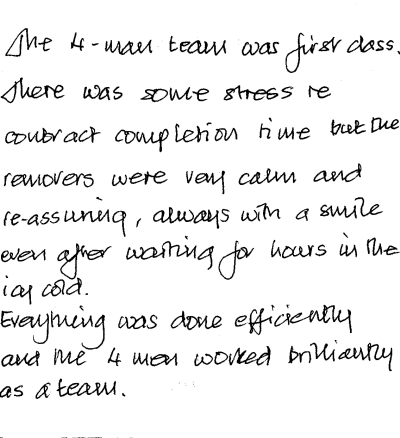 The 4-man team was first class.
There was some stress re
contract completion time but the
removers were very calm and
re-assuring, always with a smile
even after waiting for hours in the
icy cold.
Everything was done efficiently
and the 4 men worked brilliantly
as a team.